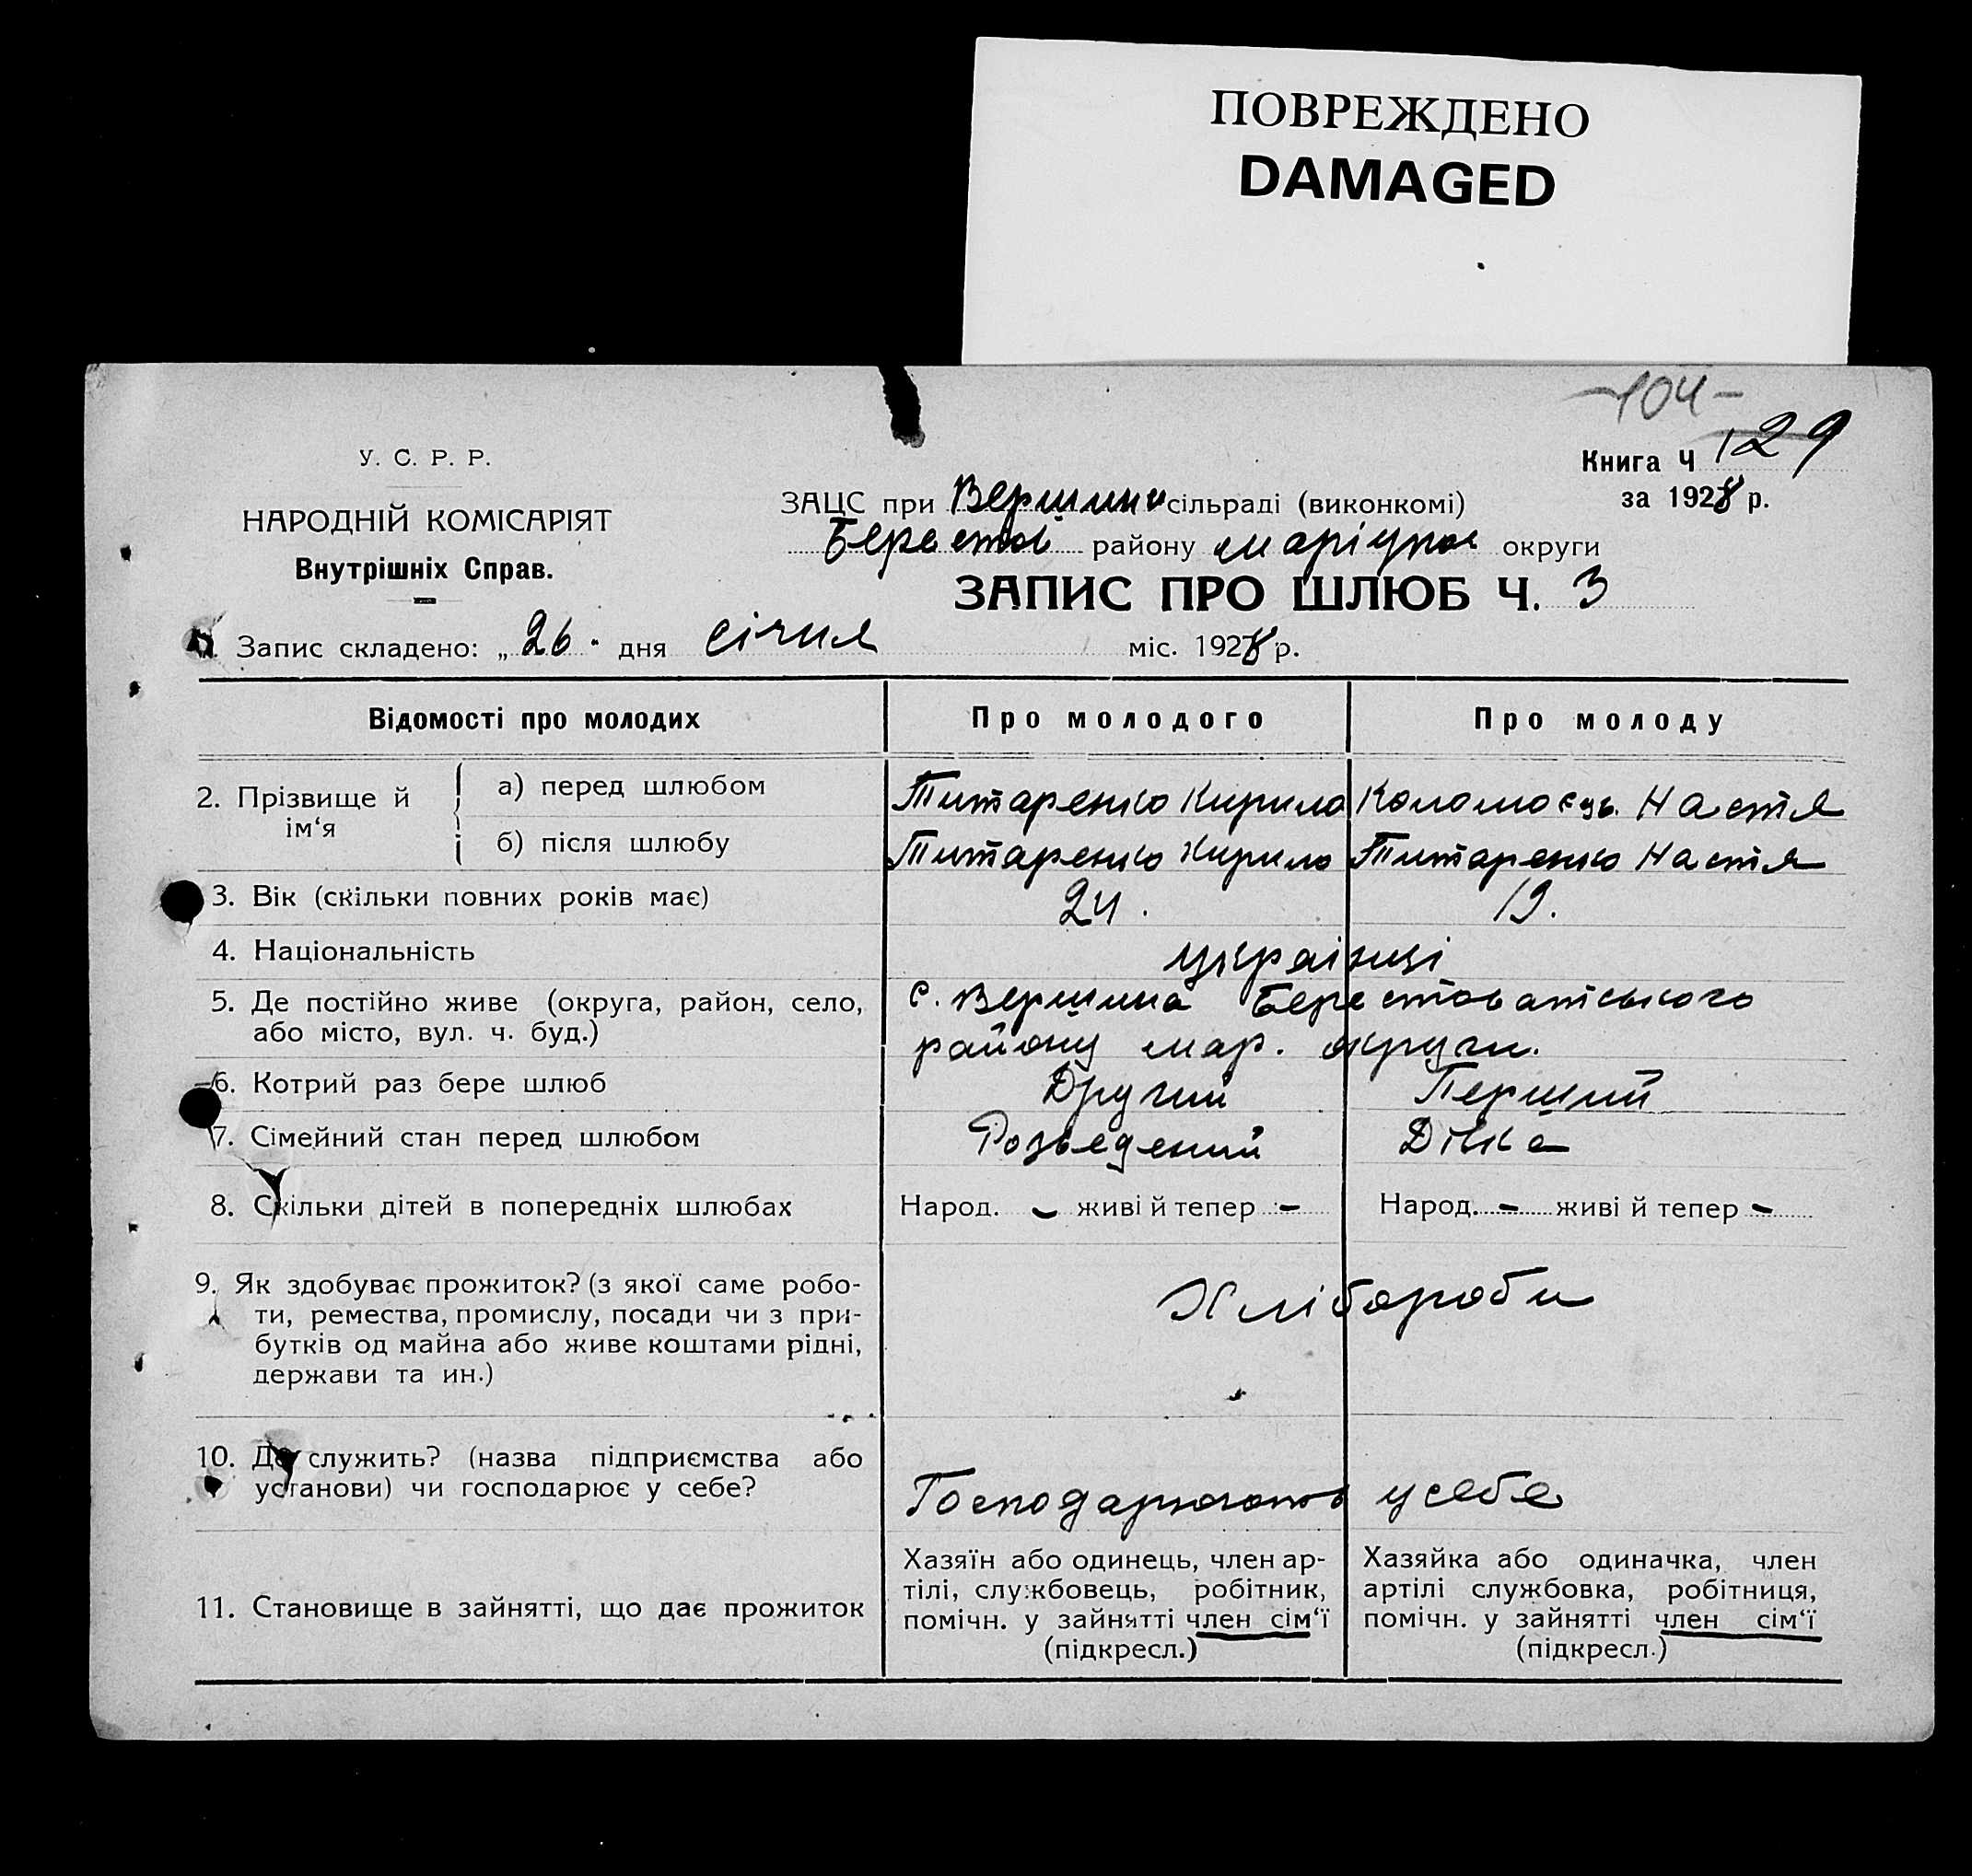 ПОВРЕЖДЕНО
DAMAGED
-104-
У. С. Р. Р.
Книга Ч 129
НАРОДНІЙ КОМІСАРІЯТ
ЗАЦС при Вершин сільраді (виконкомі)
за 1928 р.
Внутрішніх Справ.
Берестов району маріупол округи
ЗАПИС ПРО ШЛЮБ Ч. 3
1. Запис складено: „26" дня січня міс. 1928 р.
Відомості про молодих Про молодого Про молоду
2. Прізвище й ім‘я
а) перед шлюбом Титаренко Кирило Коломоєць Настя
б) після шлюбу Титаренко Кирило Титаренко Настя
3. Вік (скільки повних років має) 24. 19.
4. Національність українці
5. Де постійно живе (округа, район, село, с. Вершина Берестоватського
або місто, вул. ч. буд.) району мар. округи.
6. Котрий раз бере шлюб Другий Перший
7. Сімейний стан перед шлюбом Розведений Дівка
8. Скільки дітей в попередніх шлюбах Народ. - живі й тепер - Народ. - живі й тепер -
9. Як здобуває прожиток? (з якої саме робо-
ти, ремества, промислу, посади чи з при- Хлібороби
бутків од майна або живе коштами рідні,
держави та ин.)
10. Де служить? (назва підприємства або
установи) чи господарює у себе? Господарюють у себе
11. Становище в зайнятті, що дає прожиток
Хазяїн або одинець, член ар-
тілі, службовець, робітник,
помічн. у зайнятті член сім‘ї
(підкресл.)
Хазяйка або одиначка, член
артілі службовка, робітниця,
помічн. у зайнятті член сім‘ї
(підкресл.)